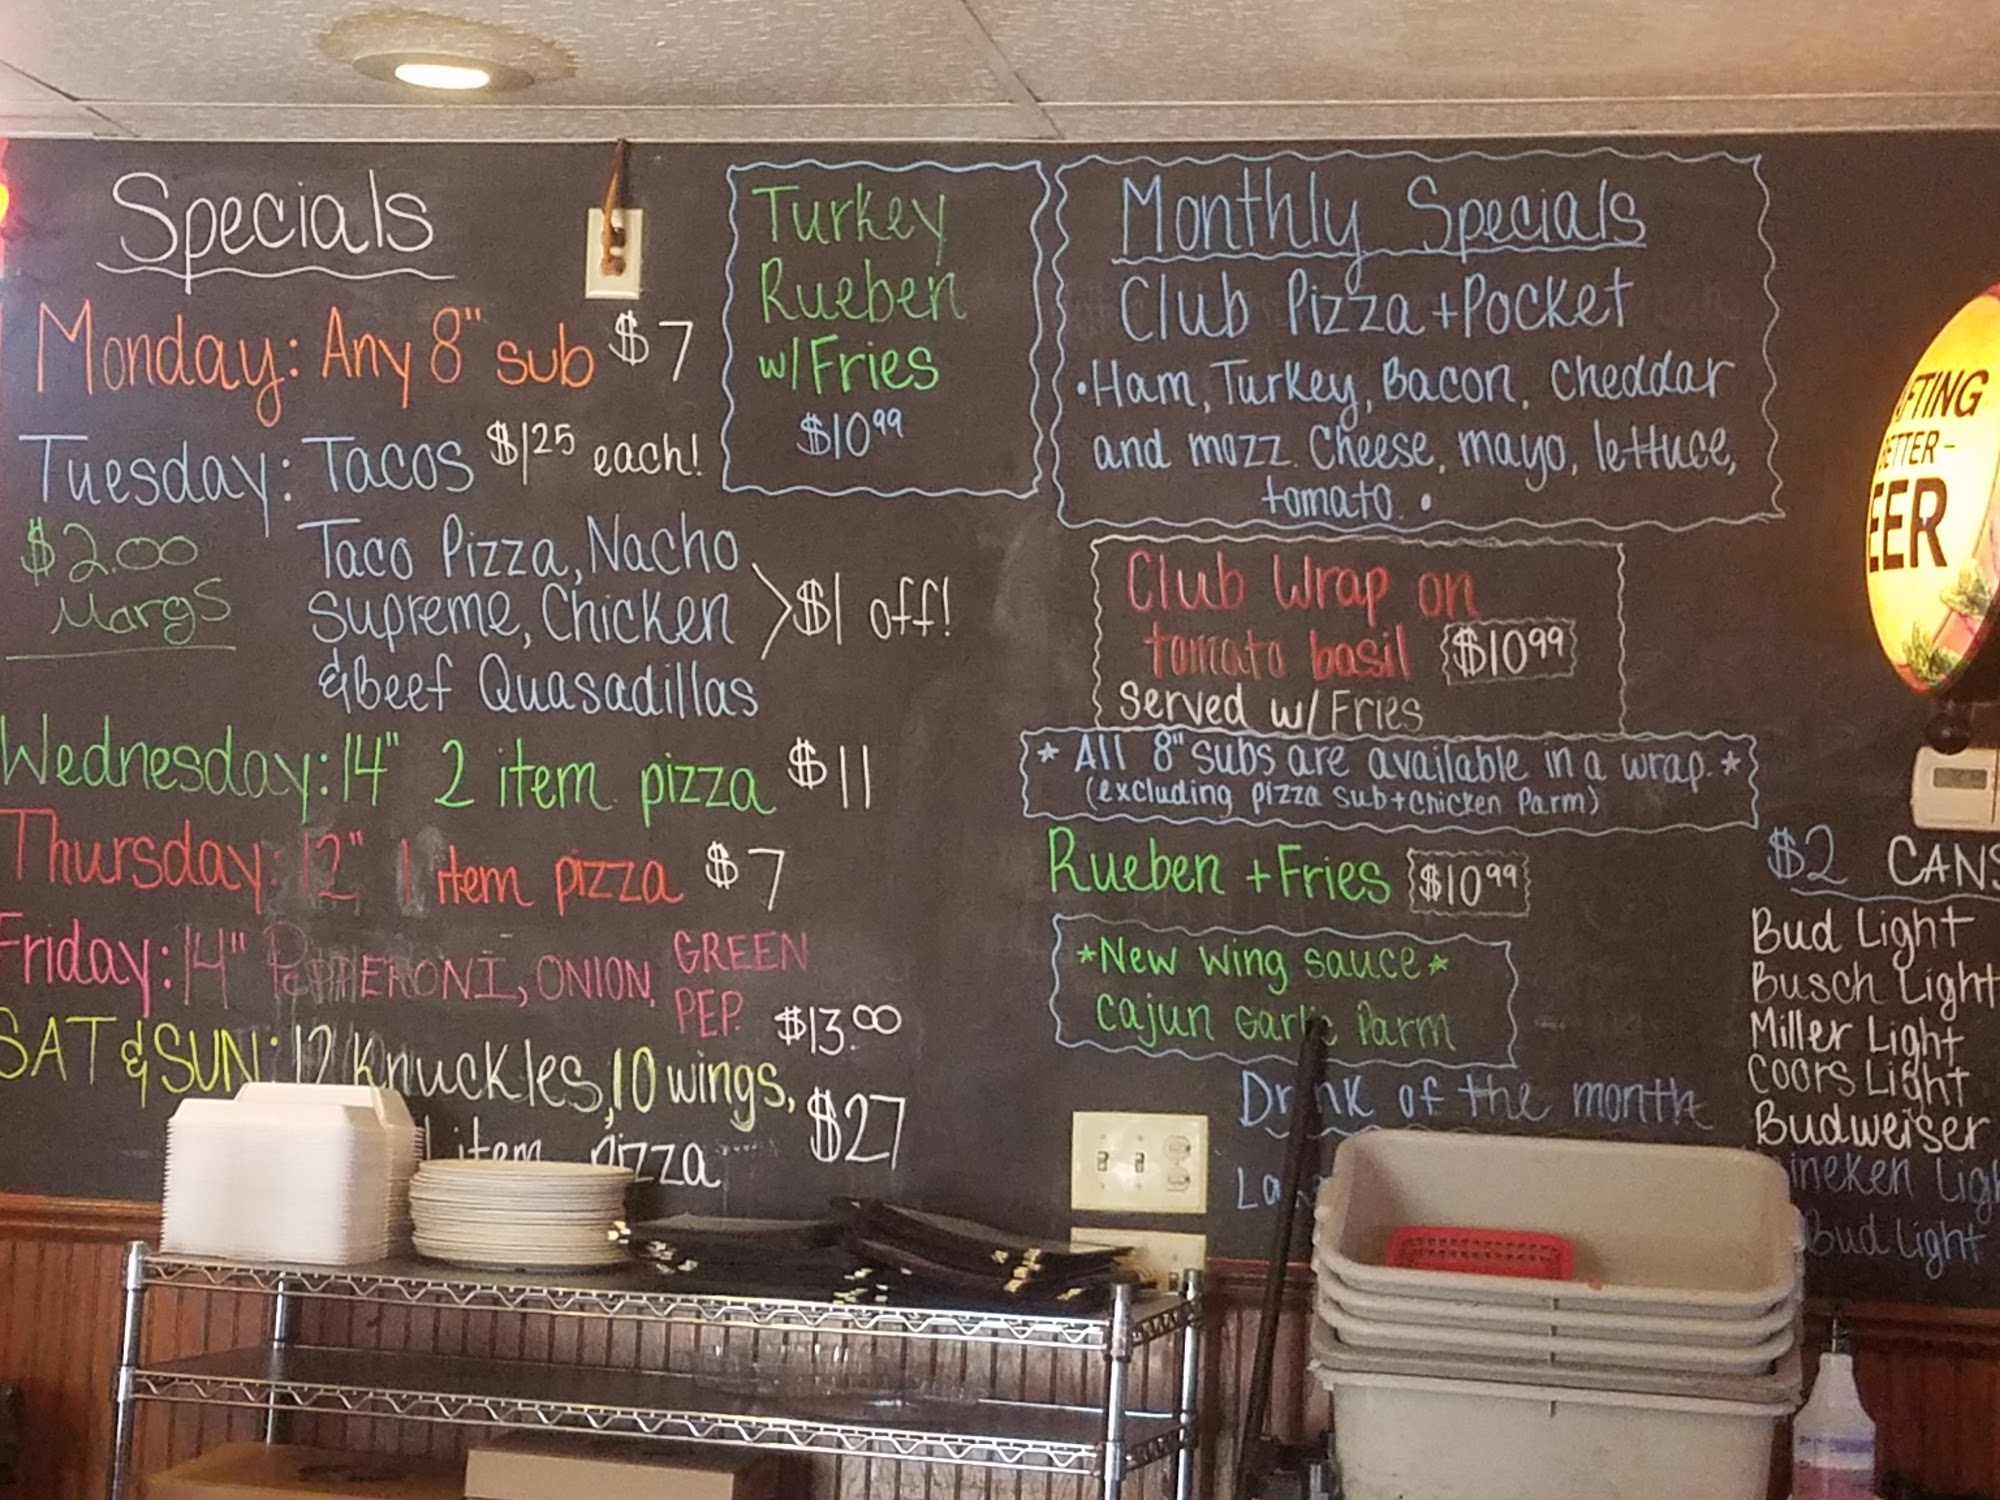 Specials
Monday: Any 8" sub $7
Tuesday: Tacos $1.25 each!
$2.00
Margs
Taco Pizza, Nacho
Supreme, Chicken
& Beef Quasadillas
>$1 off!
Wednesday: 14" 2 item pizza $11
Thursday: 12" 1 item pizza $7
Friday: 14" PEPPERONI, ONION, GREEN
PEP. $13.00
SAT & SUN: 12 Knuckles, 10 wings,
1 item pizza $27
Turkey
Rueben
w/Fries
$10.99
Monthly Specials
Club Pizza + Pocket
• Ham, Turkey, Bacon, Cheddar
and mozz. Cheese, mayo, lettuce,
tomato. •
Club Wrap on
tomato basil $10.99
Served w/ Fries
* All 8" subs are available in a wrap. *
(excluding pizza sub + Chicken Parm)
Rueben + Fries $10.99
*New wing sauce*
Cajun Garlic Parm
Drink of the month
$2 CANS
Bud Light
Busch Light
Miller Light
Coors Light
Budweiser
Bud Light
FTING
ETTER-
EER